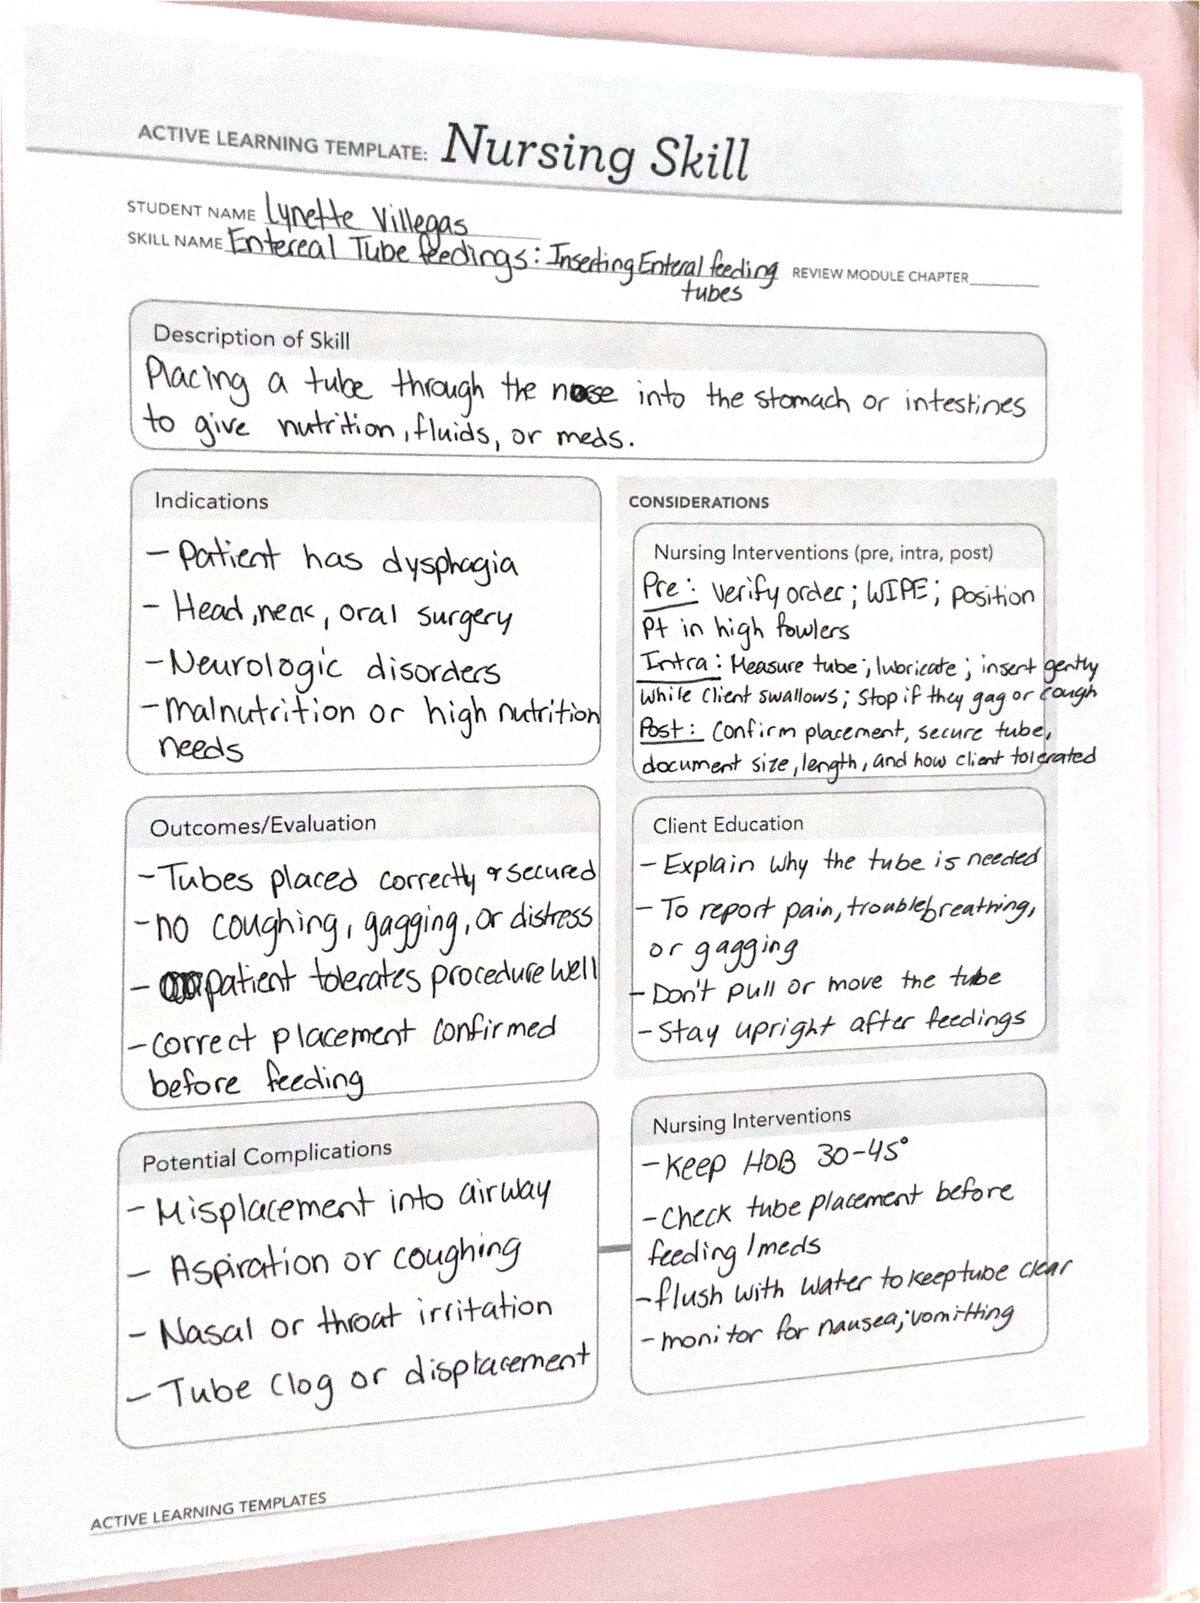 ACTIVE LEARNING TEMPLATE: Nursing Skill
STUDENT NAME Lynette Villegas
SKILL NAME Entereal Tube feedings: Inserting Enteral feeding tubes REVIEW MODULE CHAPTER
Description of Skill
Placing a tube through the nose into the stomach or intestines
to give nutrition, fluids, or meds.
Indications
- Patient has dysphagia
- Head, neck, oral surgery
- Neurologic disorders
- Malnutrition or high nutrition
needs
CONSIDERATIONS
Nursing Interventions (pre, intra, post)
Pre: verify order; WIPE; position
Pt in high fowlers
Intra: Measure tube; lubricate; insert gently
while client swallows; stop if they gag or cough
Post: Confirm placement, secure tube,
document size, length, and how client tolerated
Outcomes/Evaluation
- Tubes placed correctly & secured
- no coughing, gagging, or distress
- patient tolerates procedure well
- correct placement confirmed
before feeding
Client Education
- Explain why the tube is needed
- To report pain, trouble breathing,
or gagging
- Don't pull or move the tube
- Stay upright after feedings
Potential Complications
- Misplacement into airway
- Aspiration or coughing
- Nasal or throat irritation
- Tube clog or displacement
Nursing Interventions
- Keep HOB 30-45°
- Check tube placement before
feeding/meds
- flush with water to keep tube clear
- monitor for nausea; vomitting
ACTIVE LEARNING TEMPLATES